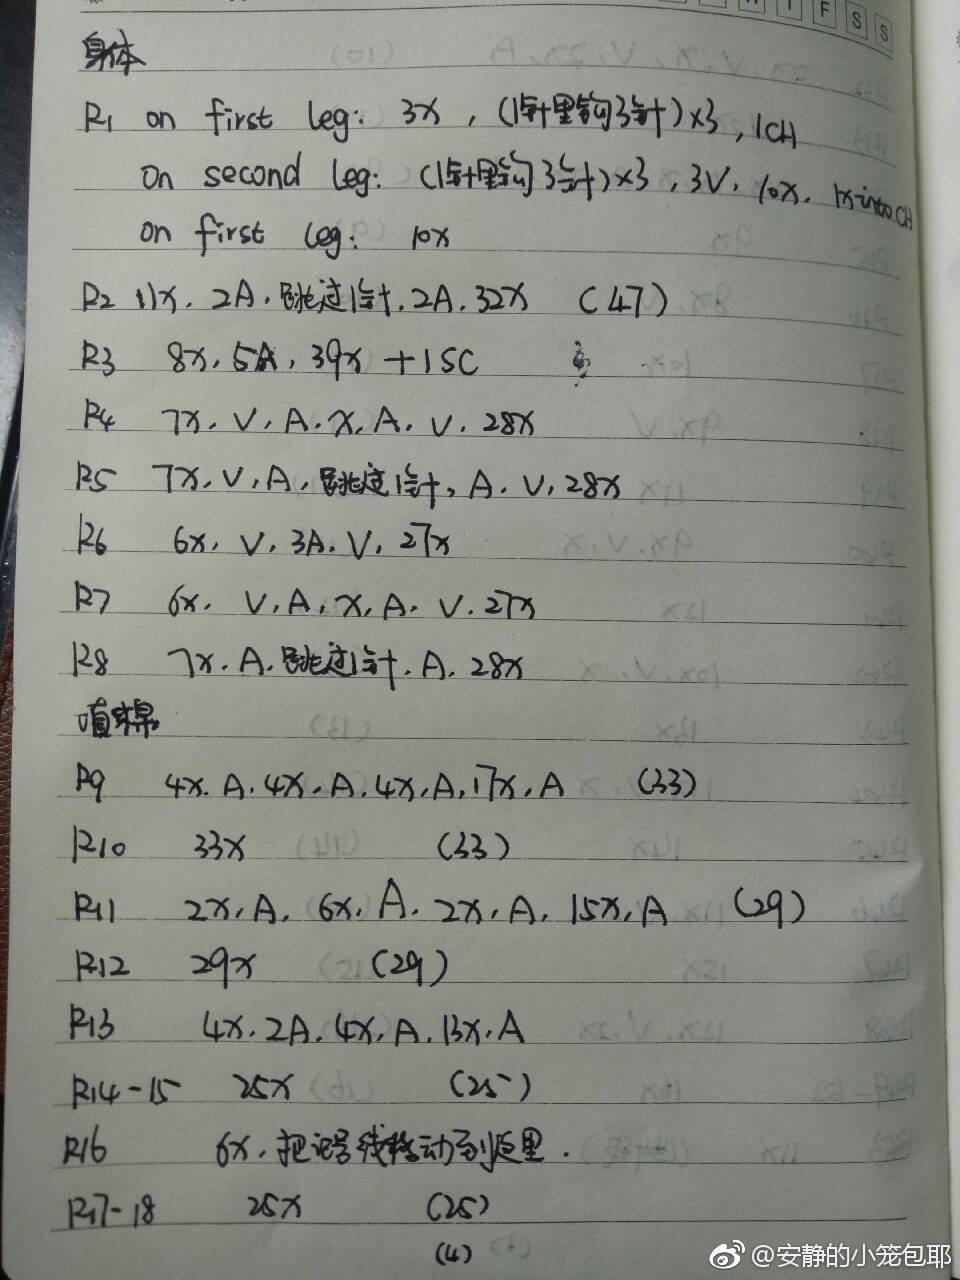 T F S S
身体
R1 on first leg: 3x, (1针里钩3针)×3, 1CH
on second leg: (1针里钩3针)×3, 3V, 10x, 1x into CH
on first leg: 10x
R2 11x, 2A, 跳过1针, 2A, 32x (47)
R3 8x, 5A, 39x + 1SC
R4 7x, V, A, x, A, V, 28x
R5 7x, V, A, 跳过1针, A, V, 28x
R6 6x, V, 3A, V, 27x
R7 6x, V, A, x, A, V, 27x
R8 7x, A, 跳过1针, A, 28x
填棉
R9 4x, A, 4x, A, 4x, A, 17x, A (33)
R10 33x (33)
R11 2x, A, 6x, A, 2x, A, 15x, A (29)
R12 29x (29)
R13 4x, 2A, 4x, A, 13x, A
R14-15 25x (25)
R16 6x, 把记号线移动到这里.
R17-18 25x (25)
(4)
@安静的小笼包耶